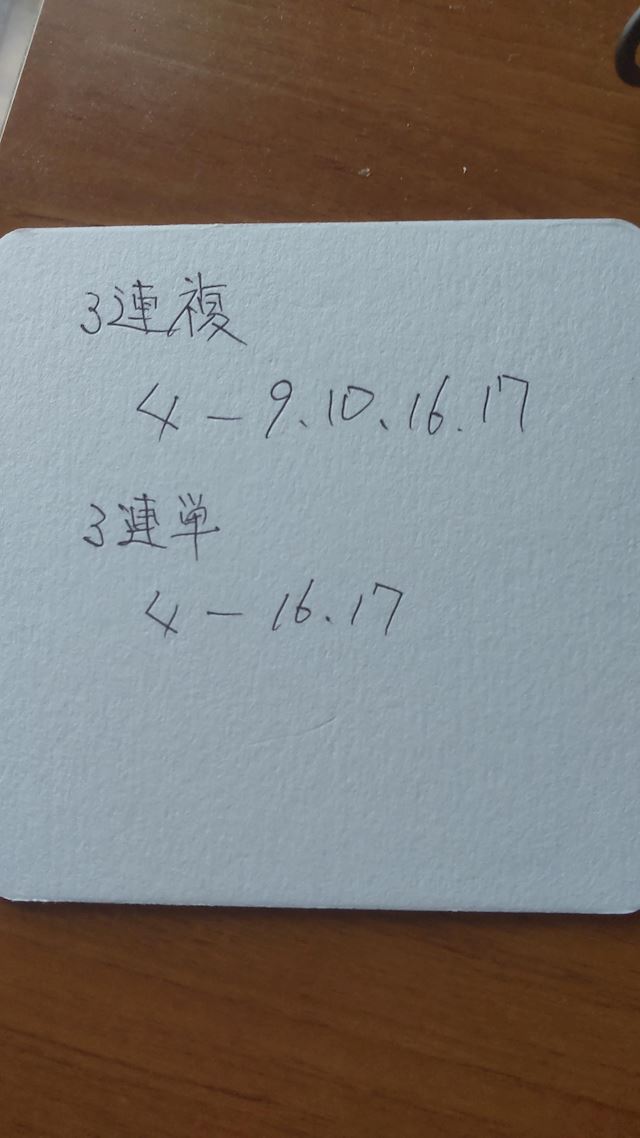 3連複
4-9、10、16.17
3連単
4-16.17